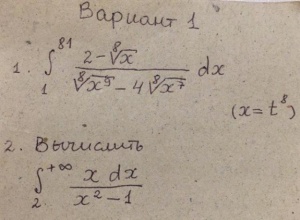 Вариант 1
1. ∫₁⁸¹ (2 - ⁸√x) / (⁸√x⁹ - 4 ⁸√x⁷) dx
(x = t⁸)
2. Вычислить
∫₂⁺∞ x dx / (x² - 1)